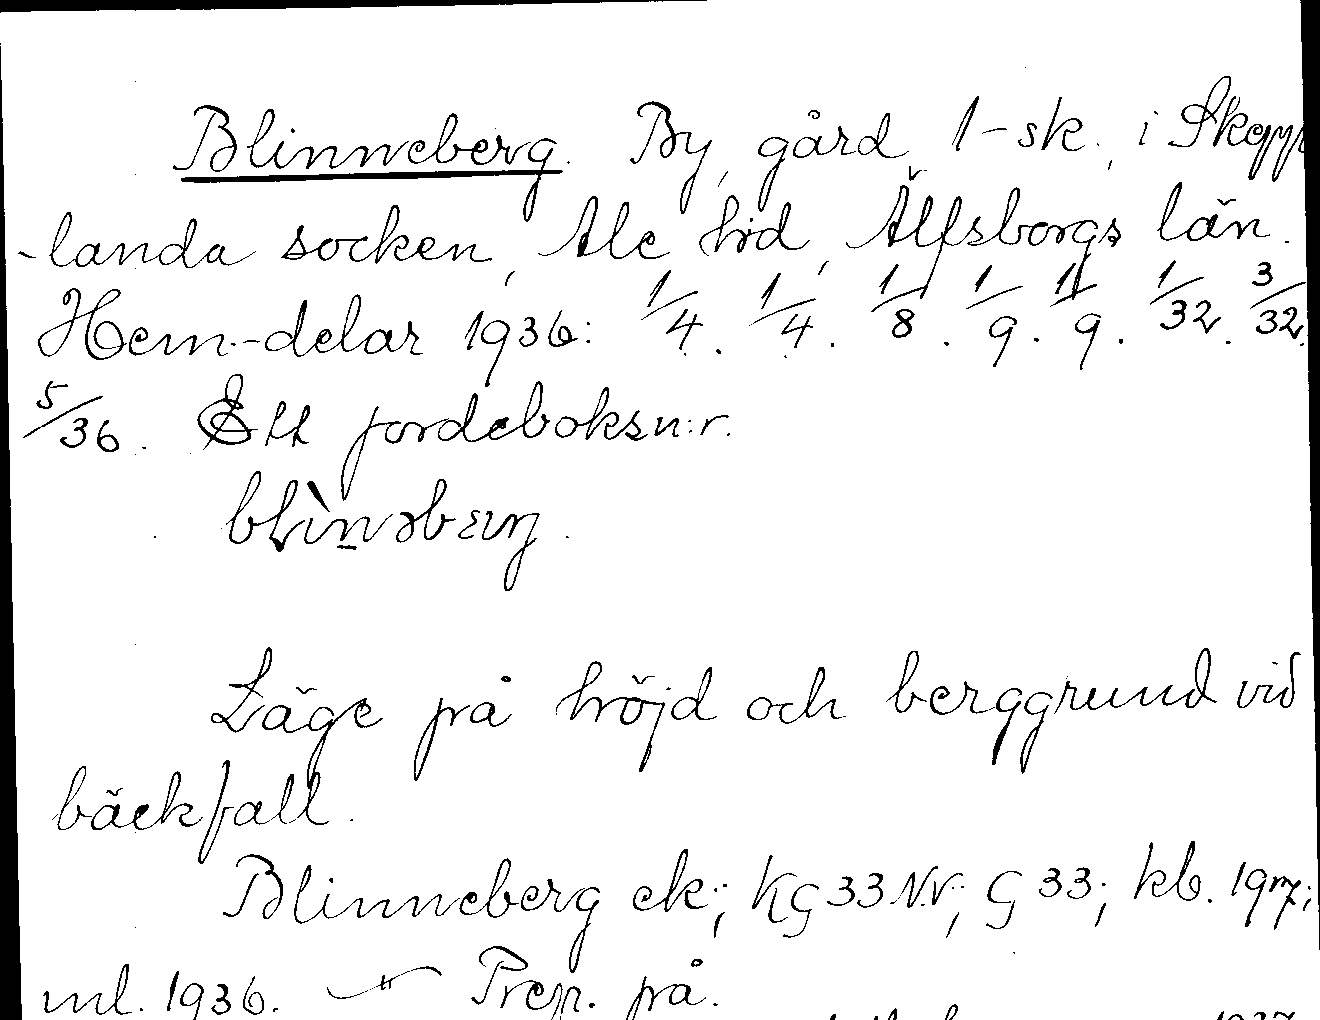 Blinneberg. By, gård, 1-sk., i Skepp
-landa socken, Ale hd, Älfsborgs län.
Hem.-delar 1936: 1/4. 1/4. 1/8. 1/9. 1/9. 1/32. 3/32.
5/36. Ett jordeboksn:r.
blìnəbærj.
Läge på höjd och berggrund vid
bäckfall.
Blinneberg ek.; KG 33 NV; G 33; kb. 1917;
ml. 1936. Prep. på.
1937